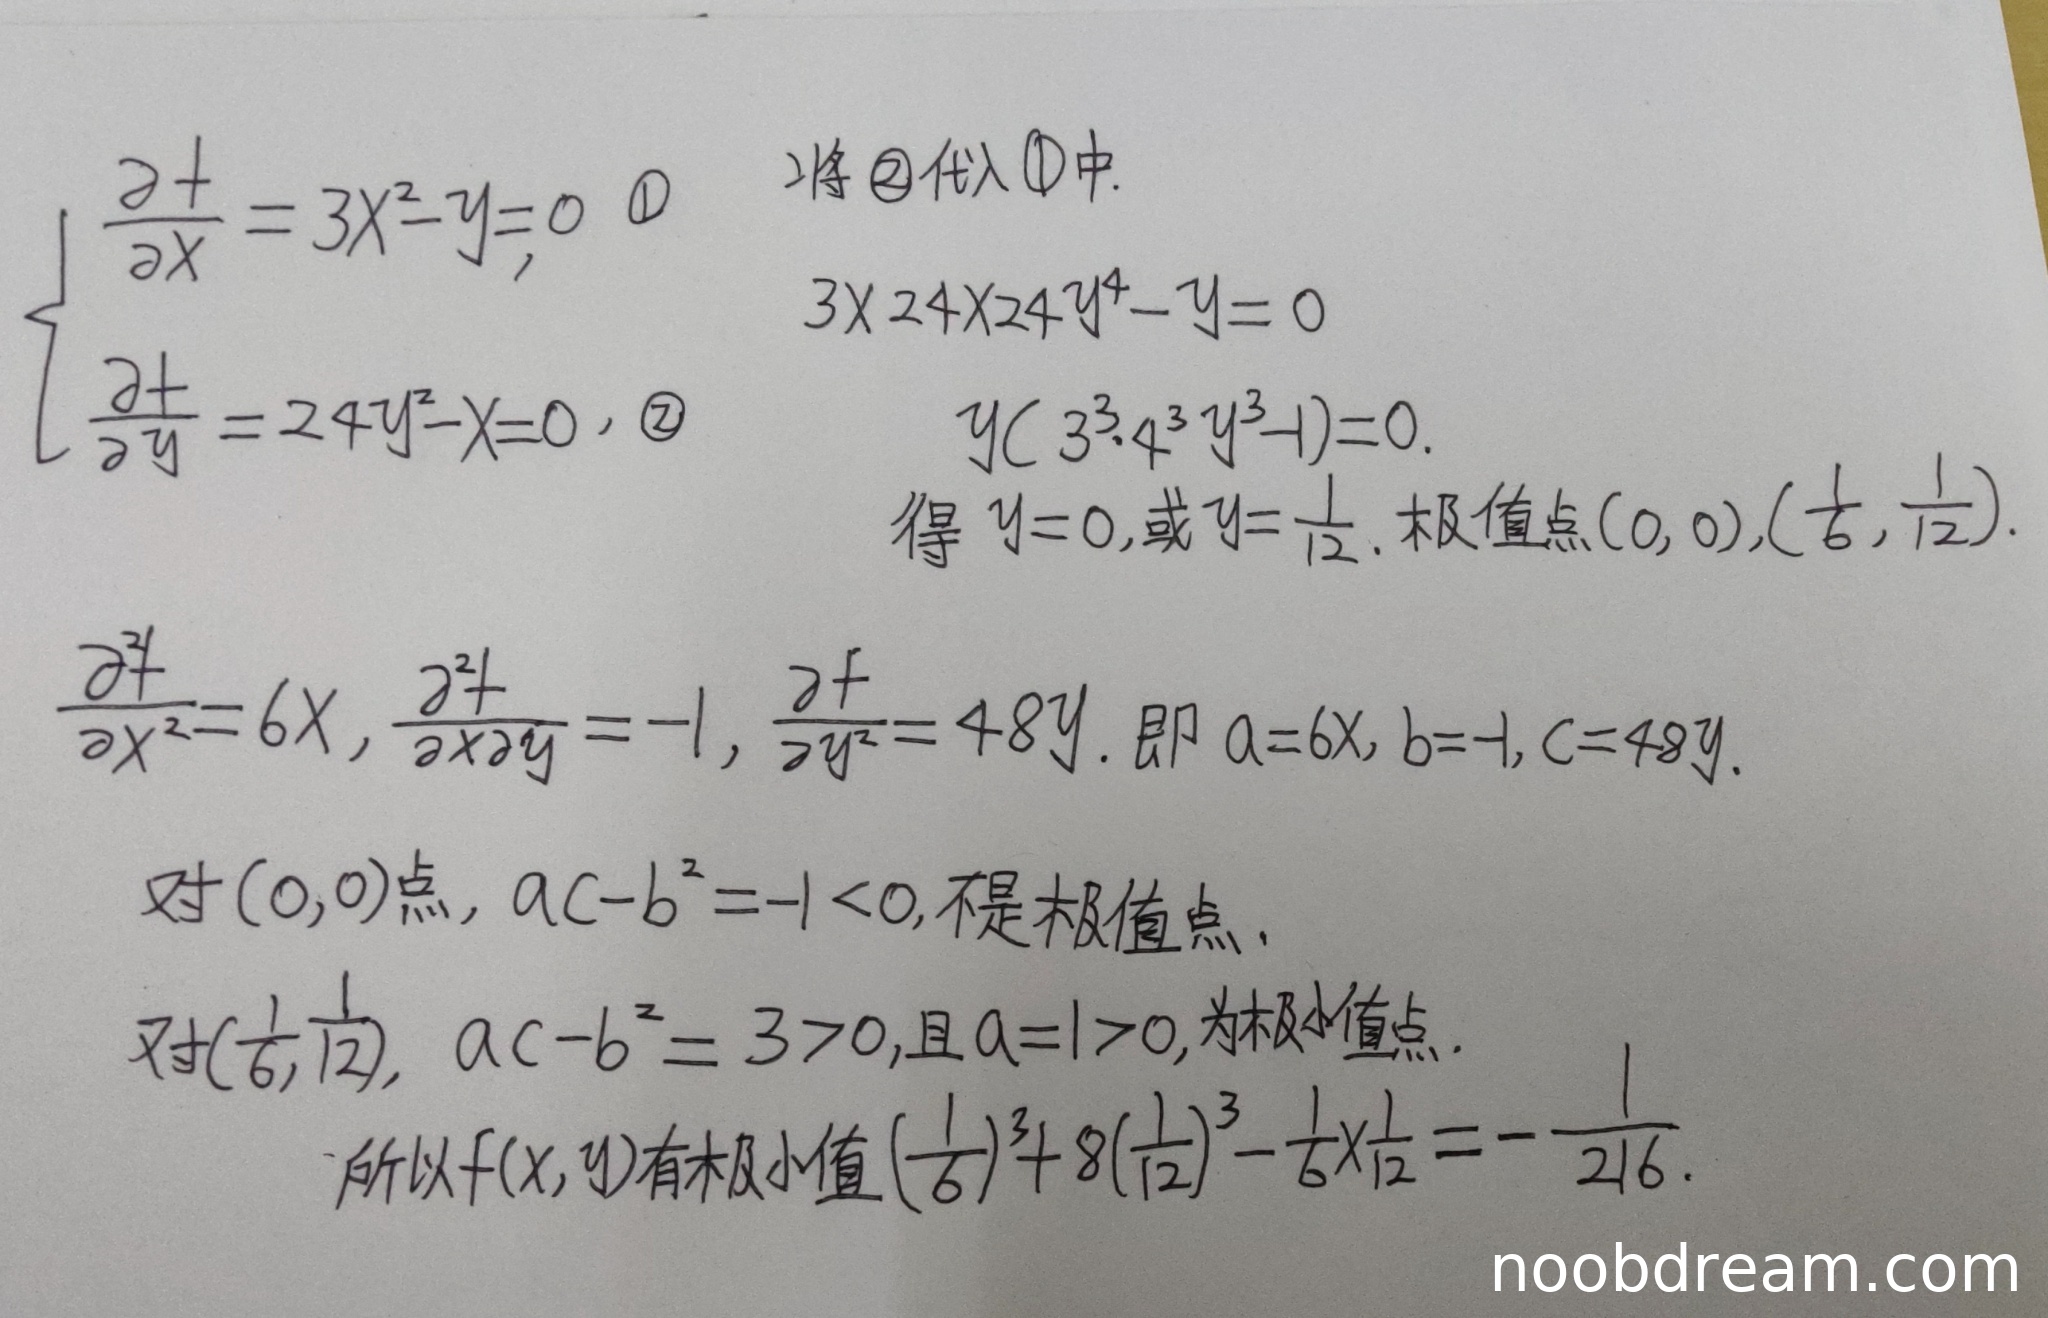 ∂f/∂x = 3x²-y=0 ①
∂f/∂y = 24y²-x=0, ②
将②代入①中.
3×24×24y⁴-y=0
y(3³·4³y³-1)=0.
得 y=0,或y=1/12. 极值点(0,0),(1/6,1/12).
∂²f/∂x²=6x, ∂²f/∂x∂y=-1, ∂f/∂y²=48y. 即 a=6x, b=-1, c=48y.
对(0,0)点, ac-b²=-1<0,不是极值点.
对(1/6,1/12), ac-b²=3>0,且a=1>0,为极小值点.
所以f(x,y)有极小值(1/6)³+8(1/12)³-1/6×1/12=-1/216.
noobdream.com